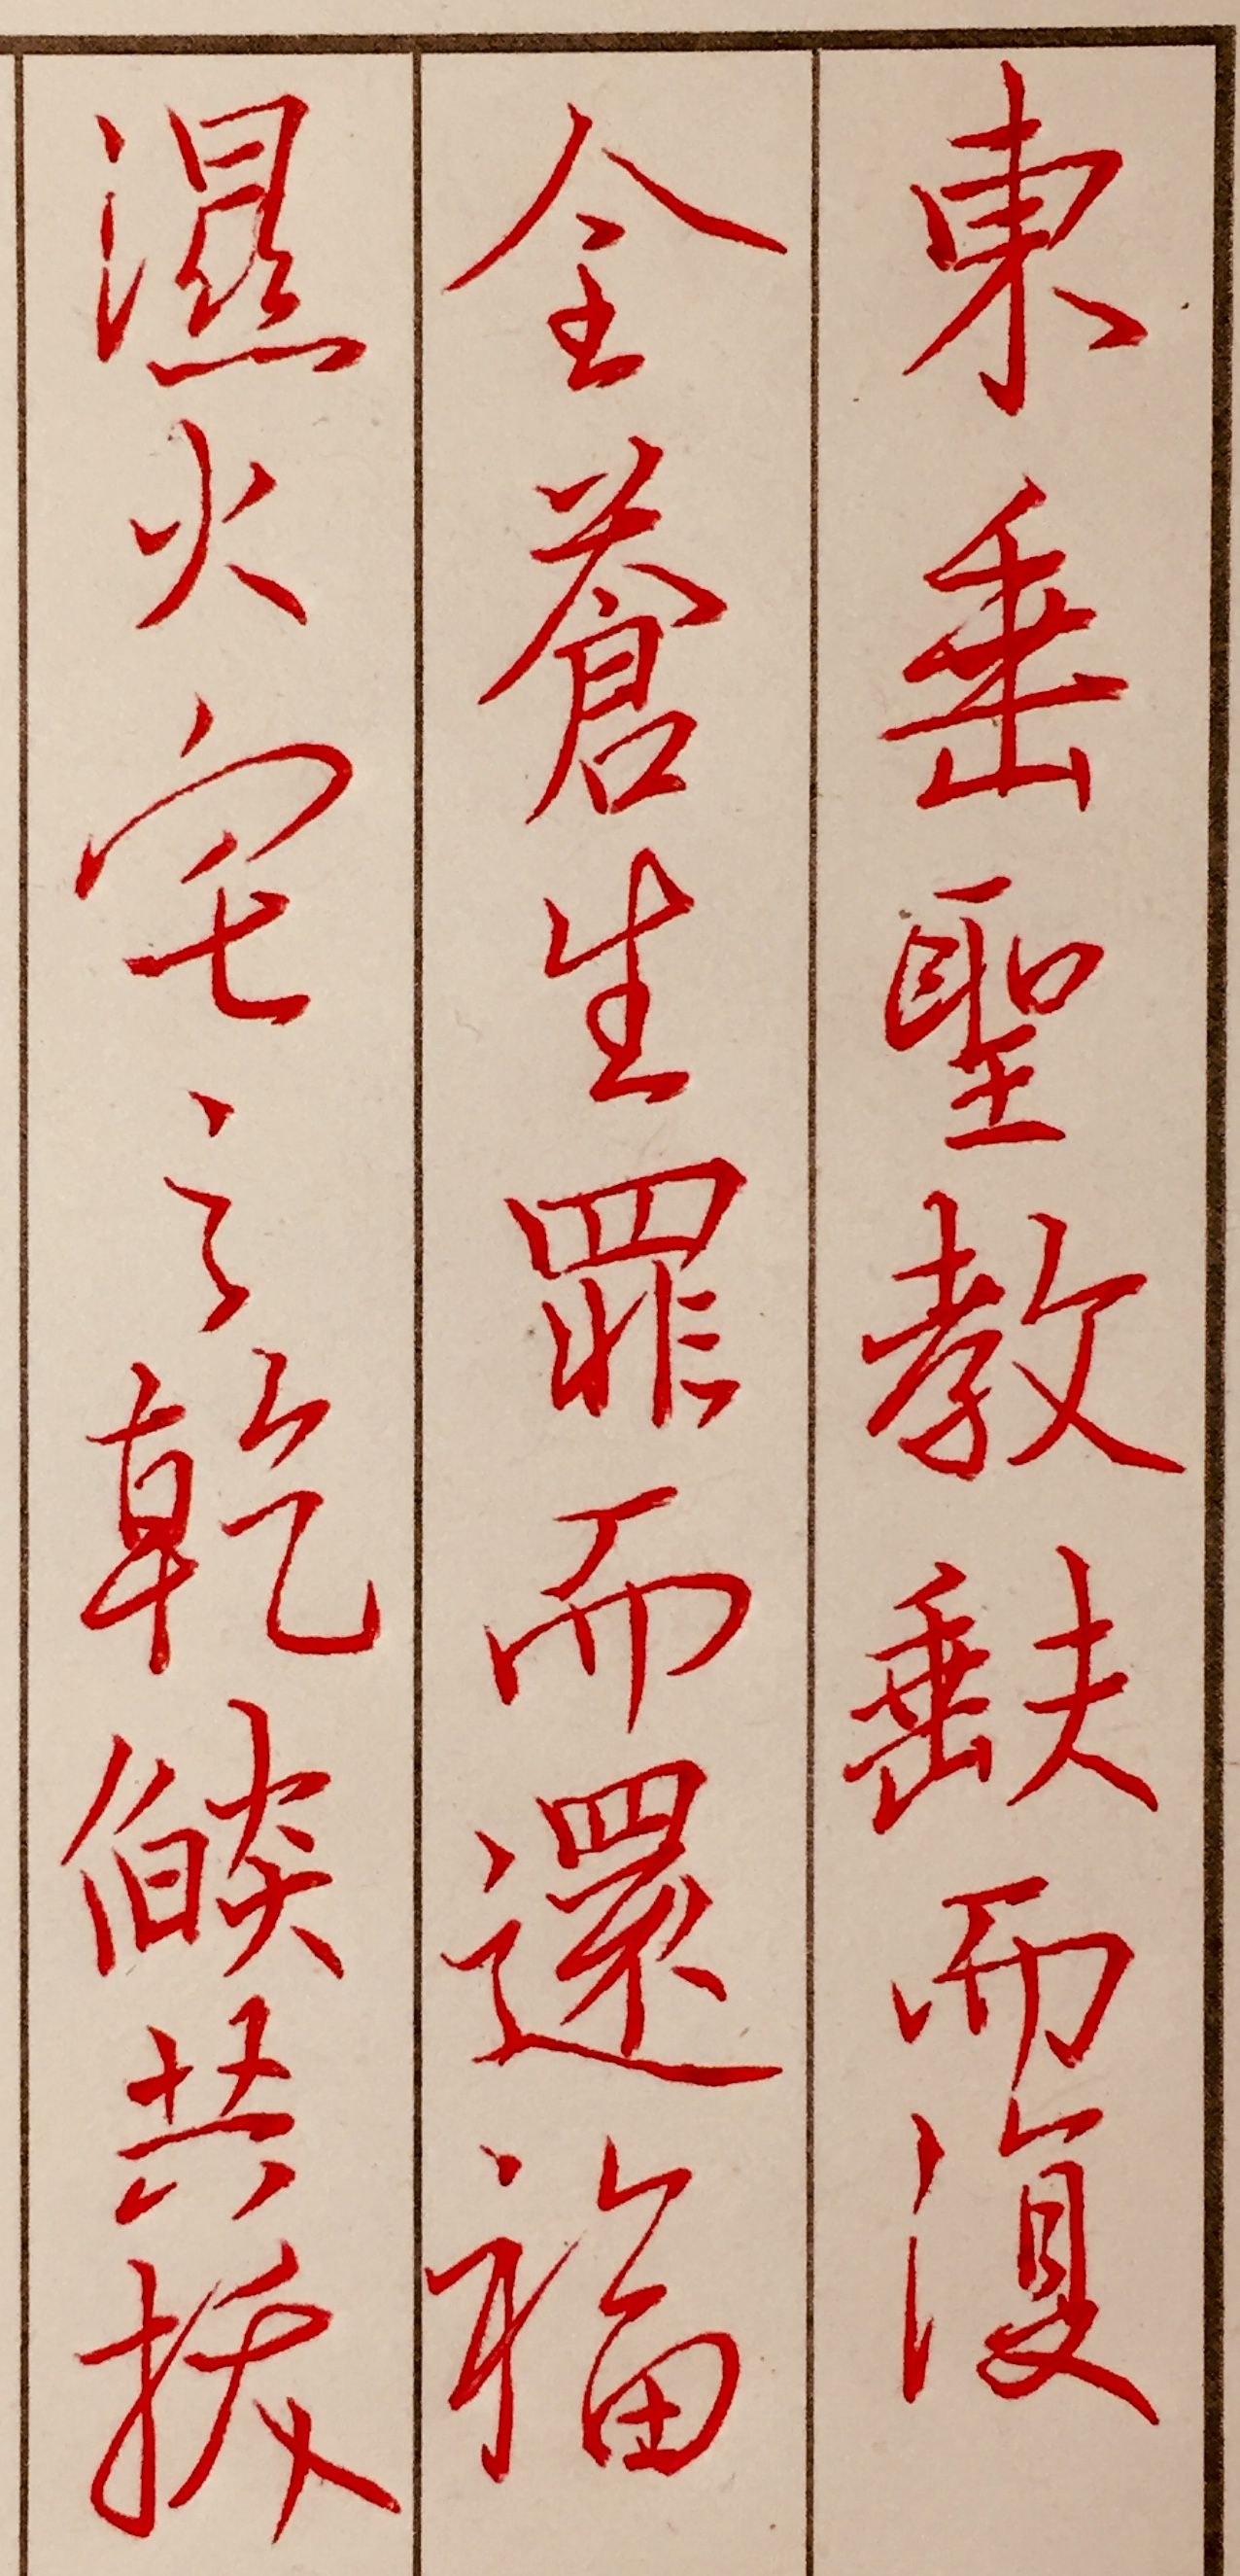 東垂聖教缺而復
全蒼生罪而還福
濕火宅之乾燄共拔